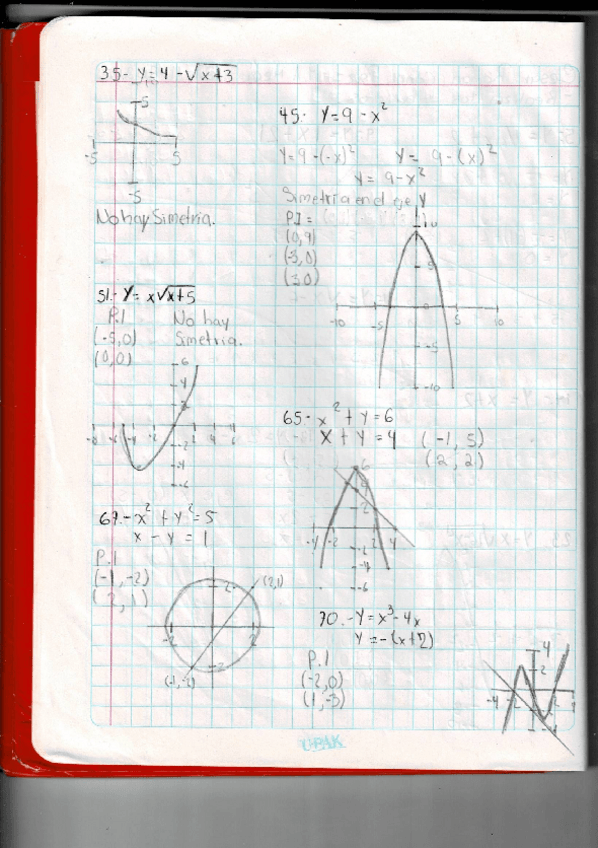 35.- y=4-√x+3
5
-5 5
-5
No hay Simetria.
45. y=9-x²
y=9-(-x)² y= 9-(x)²
y= 9-x²
Simetria en el eje y
P.I=
(0,9)
(-3,0)
(3,0)
10
5
-10 -5 5 10
-5
-10
51.- y= x√x+5
P.I No hay
(-5,0) Simetria.
(0,0)
6
4
2
-8 -6 -4 -2 2 4 6
-2
-4
-6
65.- x²+y=6
x+y=4 (-1, 5)
(2, 2)
6
4
2
-4 -2 2 4
-2
-4
-6
67.- x²+y²=5
x-y=1
P.I
(-1,-2)
(2,1)
2 (2,1)
-2 2
-2
(-1,-2)
70.- y=x³-4x
y=-(x+2)
P.I
(-2,0)
(1,-3)
4
2
-4 -2 2 4
-4
UPAK